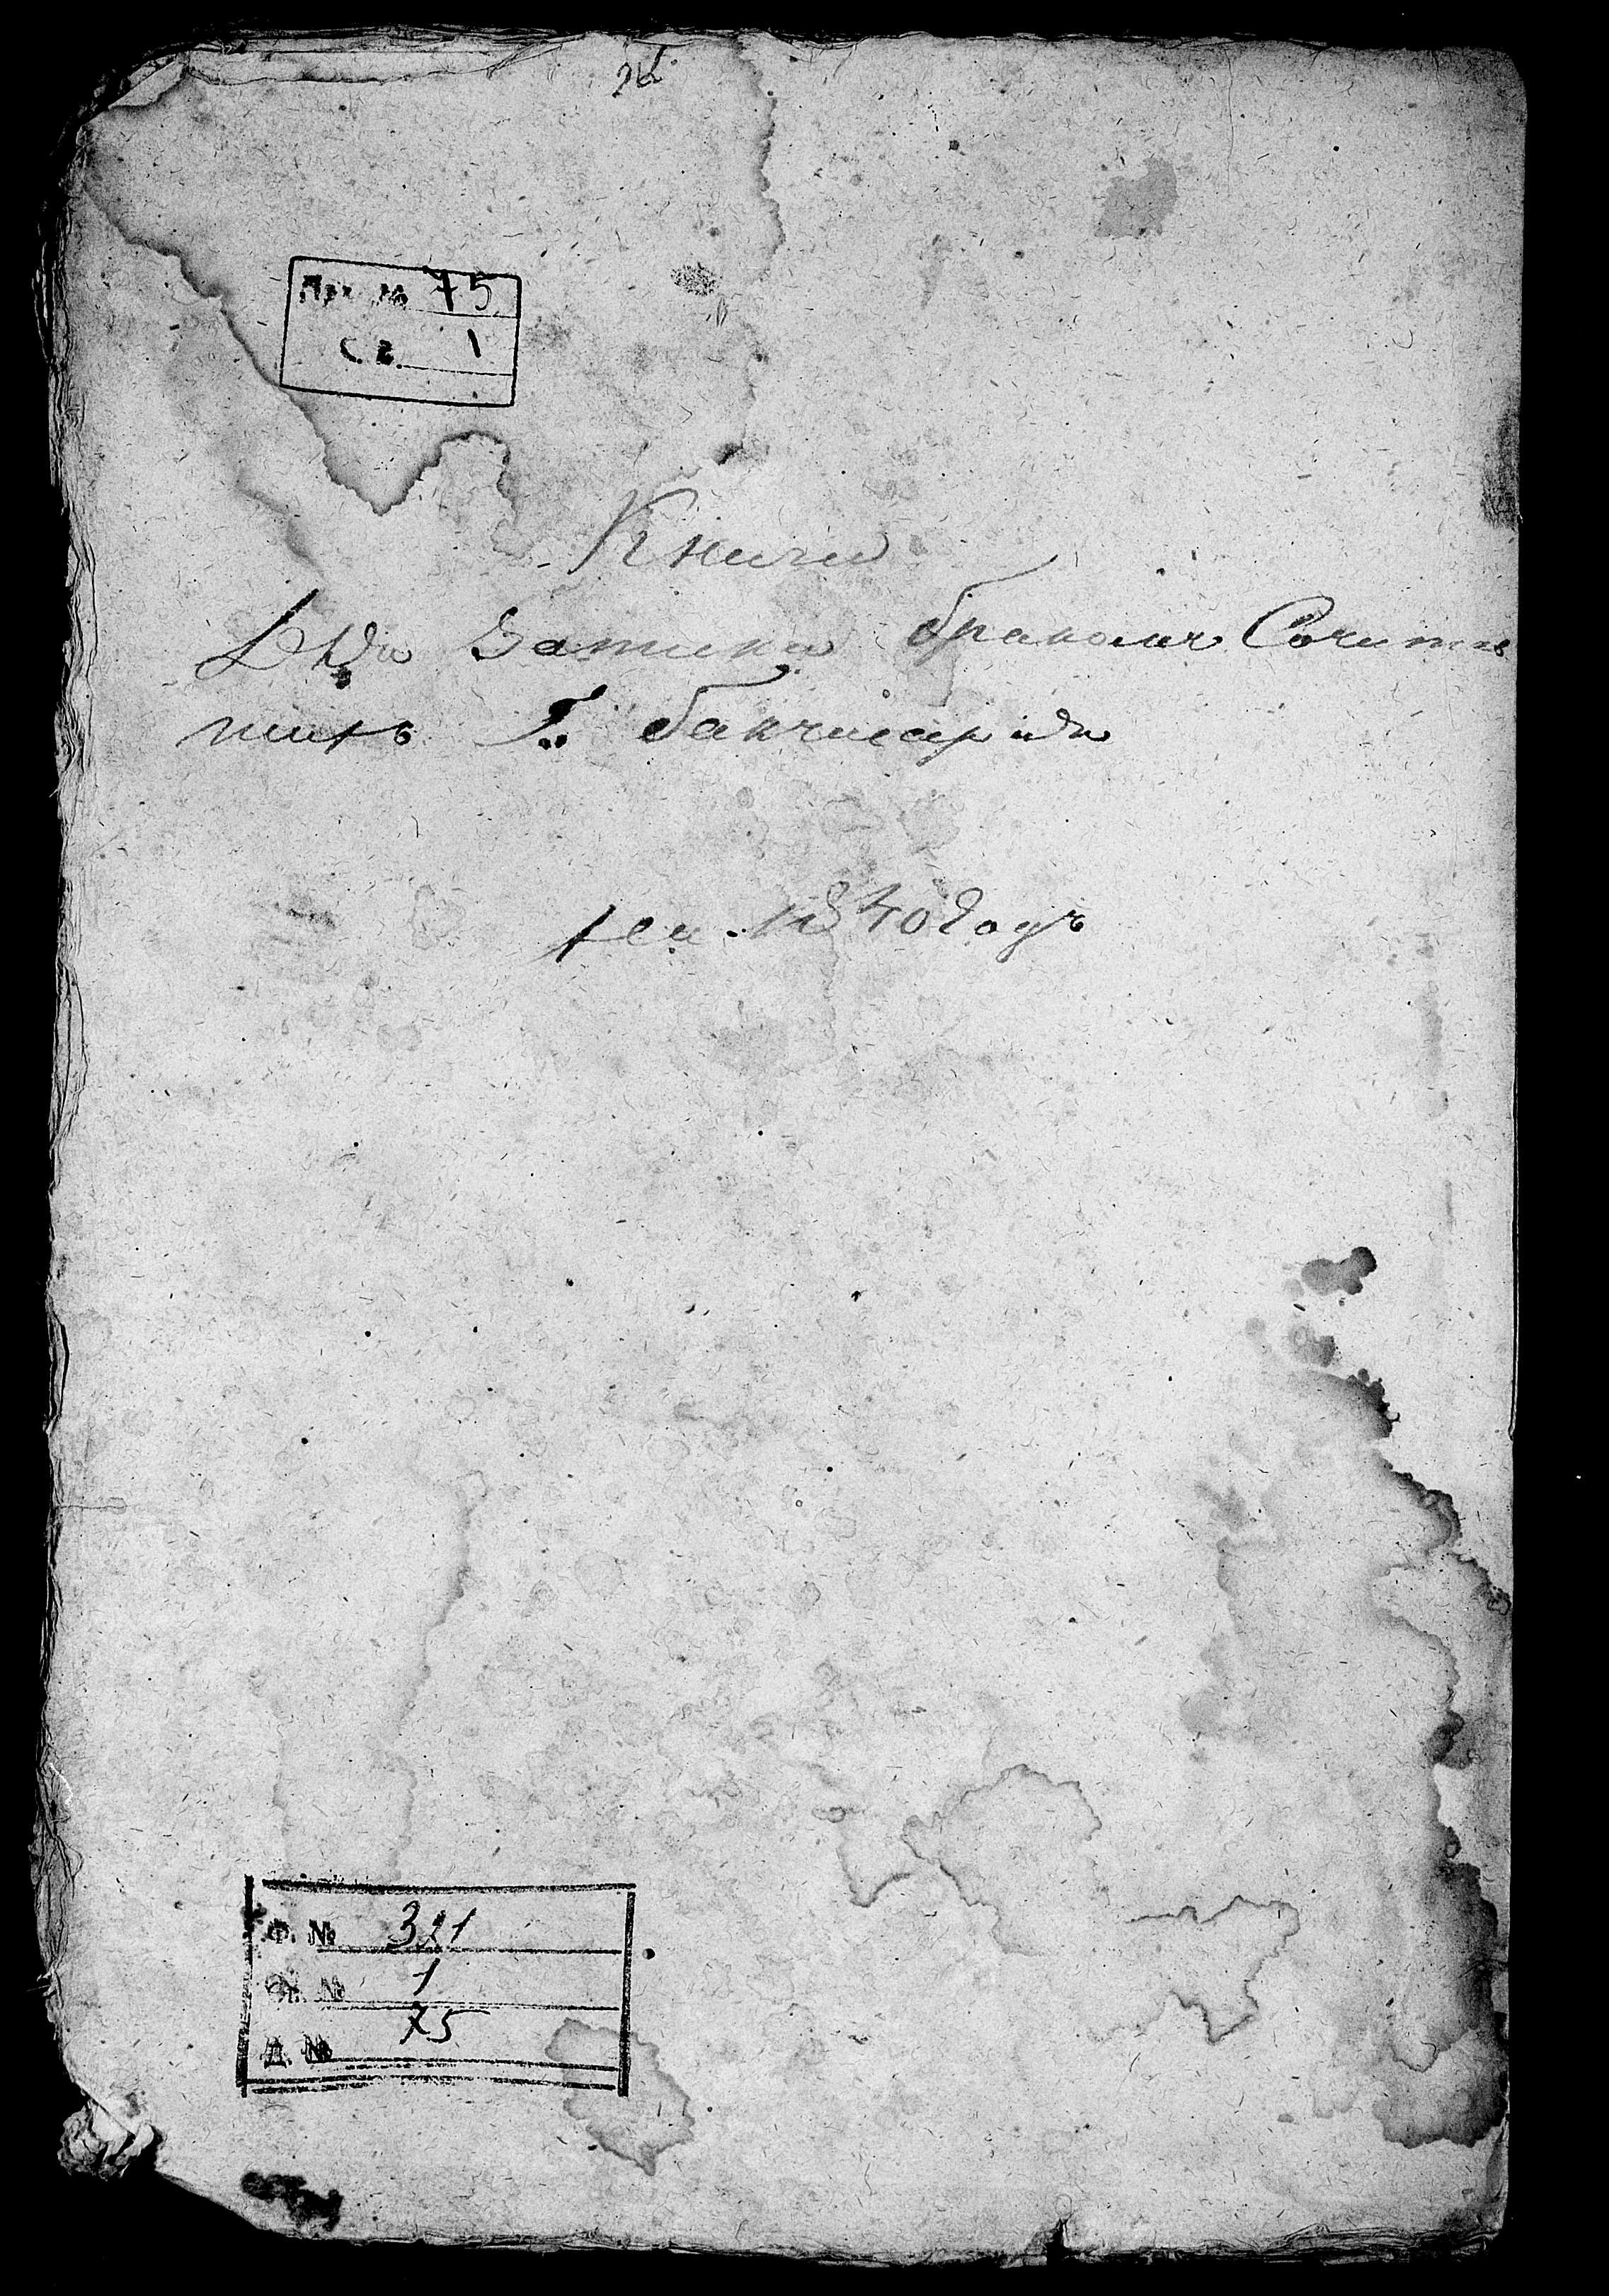 Арх. № 75
Св. 1
Книга
Для Записки бракомъ Сочета
ныхъ Г. бакчисарай
на 1840 годъ
Ф. № 321
Оп. № 1
Д. № 75